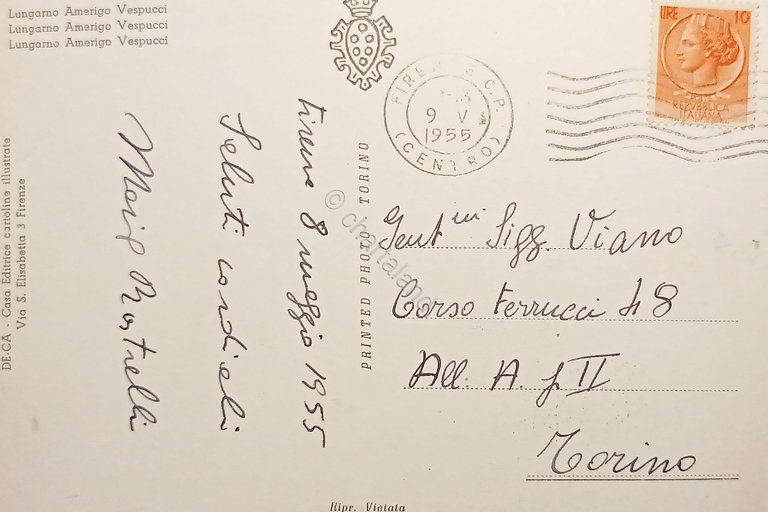 Lungarno Amerigo Vespucci
Lungarno Amerigo Vespucci
Lungarno Amerigo Vespucci
DE-CA - Casa Editrice cartoline illustrate
Via S. Elisabetta 3 Firenze
Firenze 8 maggio 1955
Saluti cordiali
Rastrelli
PRINTED PHOTO TORINO
© chartaland
FIRENZE C.P.
9 V
1955
(CENTRO)
LIRE 10
REPUBBLICA
ITALIANA
Gent.mi Sigg. Viano
Corso Ferrucci 48
All. A. f II
Torino
Ripr. Vietata